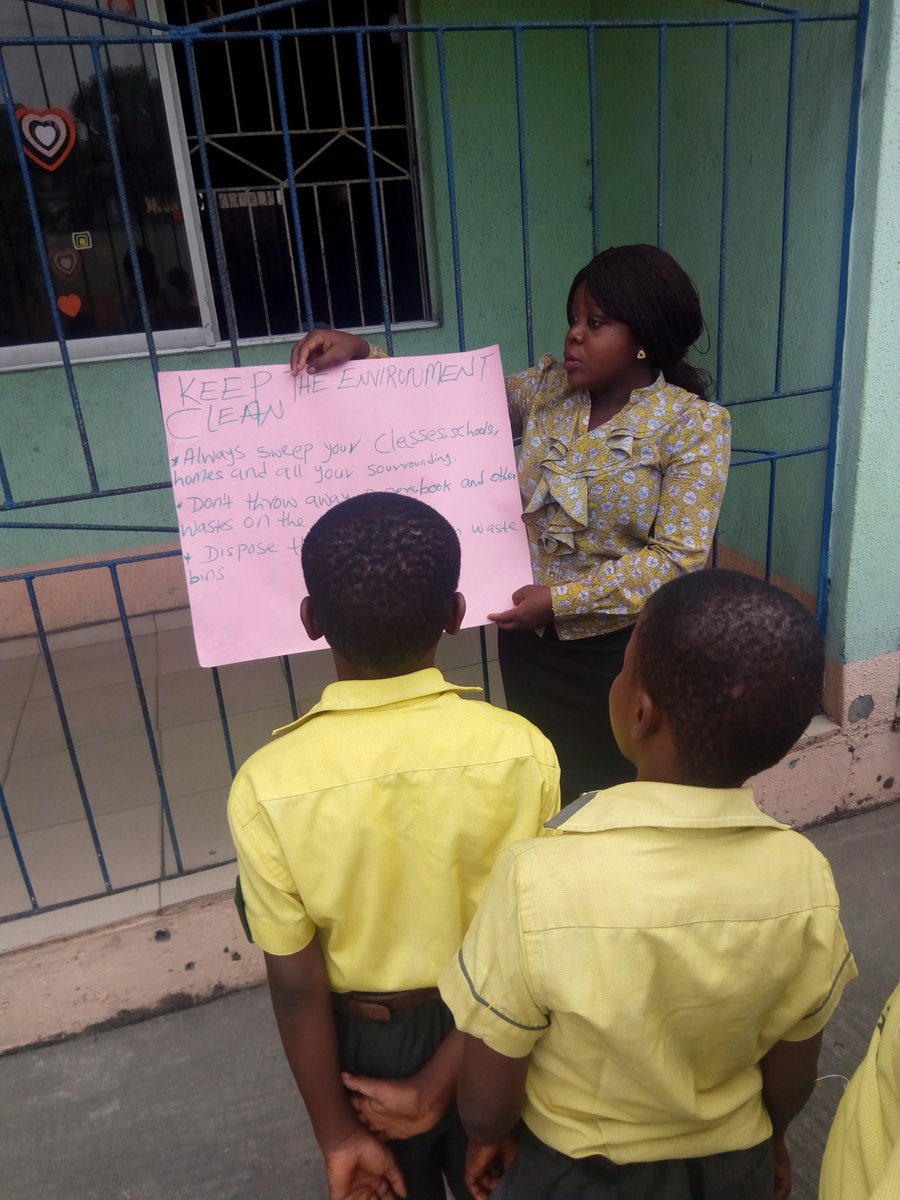 KEEP THE ENVIRONMENT
CLEAN
* Always sweep your classes, schools,
homes and all your sourrounding.
• Don't throw away book and other
wastes on the
* Dispose waste
bins